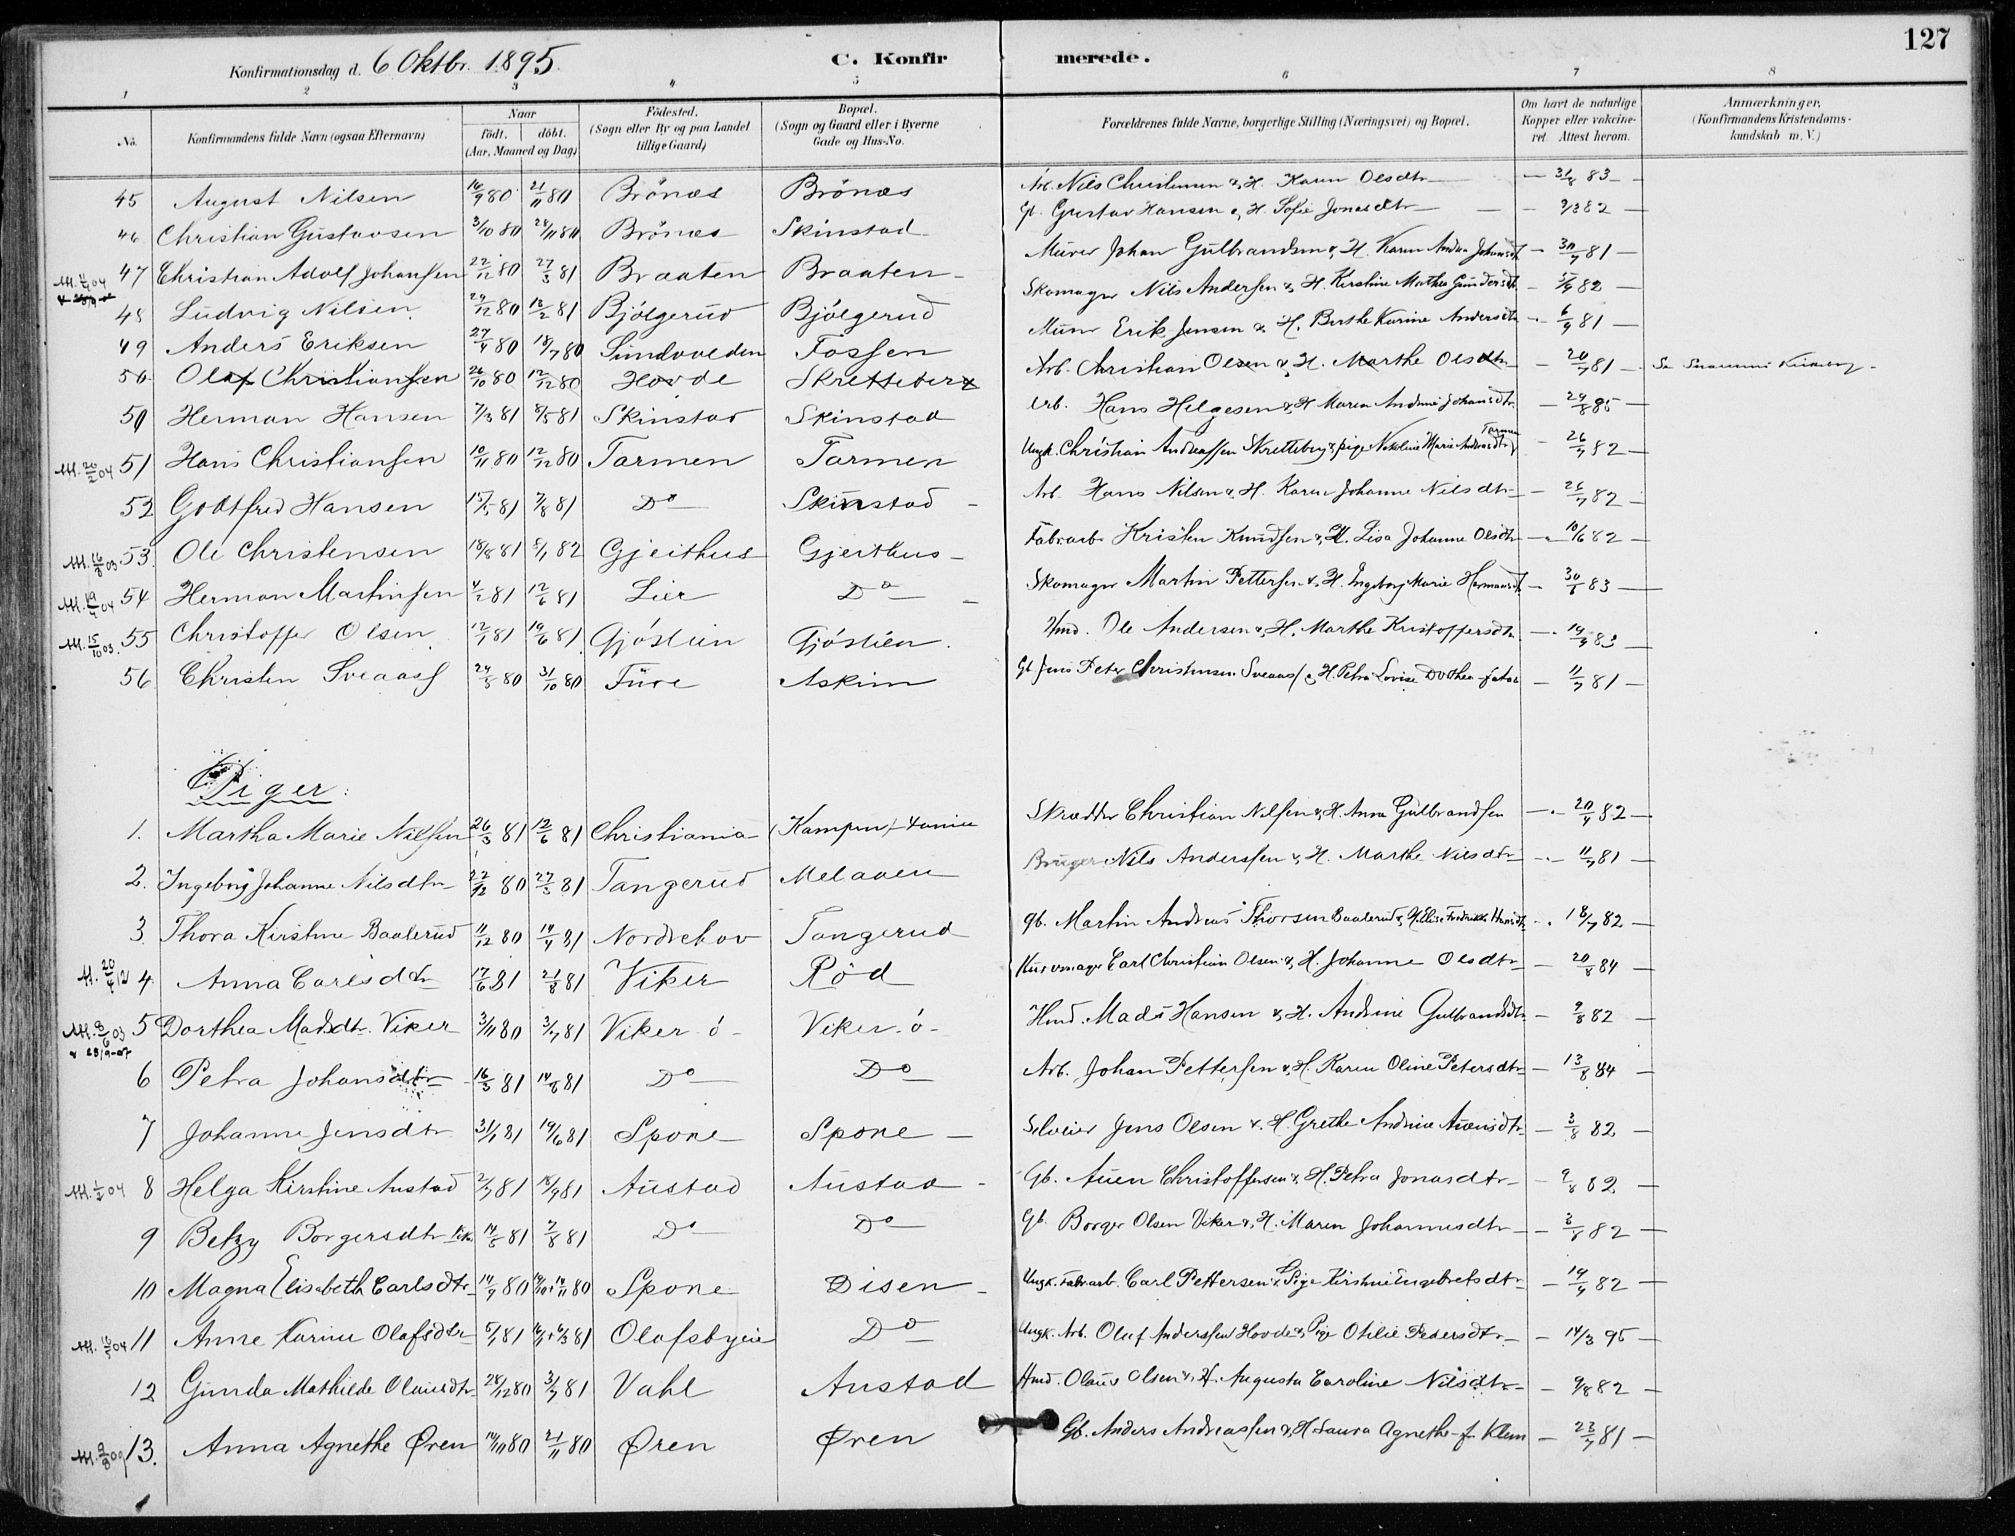 127
Konfirmationsdag d. 6 Oktbr. 1895. C. Konfir merede.
1 2 3 4 5 6 7 8
No. Konfirmandens fulde Navn (ogsaa Efternavn) Naar født. døbt. (Aar, Maaned og Dag) Fødested. (Sogn eller By og paa Landet tillige Gaard) Bopæl. (Sogn og Gaard eller i Byerne Gade og Hus-No. Forældrenes fulde Navne, borgerlige Stilling (Næringsvei) og Bopæl. Om havt de naturlige Kopper eller vaccineret. Attest herom. Anmærkninger. (Konfirmandens Kristendomskundskab m. V.)
45 August Nilsen 16/9 80 21/11 80 Brönæs Brönæs Arb. Nils Christensen & H. Karen Olsdtr — 31/8 83 —
46 Christian Gustavsen 3/10 80 28/11 80 Brönæs Skinstad Gb. Gustav Hansen & H. Sofie Jonasdtr — 9/8 82 —
47 Christian Adolf Johansen 22/12 80 27/3 81 Braaten Braaten Murer Johan Gulbrandsen & H. Karen Andrea — 30/7 81 —
48 Ludvig Nilsen 29/12 80 13/2 81 Bjölgerud Bjölgerud Skomager Nils Andersen & H. Kirstine Mathea Gundersdt — 5/9 82 —
49 Anders Eriksen 27/4 80 18/7 80 Sundvolden Fossen Murer Erik Jensen & H. Berthe Karine Andersdtr — 6/9 81 —
50 Olaf Christiansen 26/10 80 12/12 80 Hovde Skretteberg Arb. Christian Olsen & H. Marthe Olsdtr — 20/7 81 —
50 Herman Hansen 7/3 81 8/5 81 Skinstad Skinstad Arb. Hans Helgesen & H Maren Andrine Johansdtr — 29/8 85 —
M. 20/2 04 51 Hans Christiansen 10/11 80 12/12 80 Tarmen Tarmen Ungk. Christian Andreassen Skretteberg & pige Nikoline Marie Andreasdtr Tarmen — 26/7 82 —
52 Godtfred Hansen 15/5 81 7/8 81 Do Skinstad Arb. Hans Nilsen & H. Karen Johanne Nilsdtr — 26/7 82 —
M. 16/8 03 53. Ole Christensen 18/8 81 8/1 82 Gjeithus Gjeithus Fabrarb. Kristen Knudsen & H. Lisa Johanne Olsdtr — 10/6 82 —
M. 19/4 04 54 Herman Martinsen 4/2 81 12/6 81 Lier Do Skomager Martin Pettersen & H. Ingeborg Marie Hermansdt — 30/6 83 —
M. 15/10 03. 55 Christoffer Olsen 12/1 81 19/6 81 Gjöstien Gjöstien. Hmd. Ole Andersen & H. Marthe Kristoffersdtr — 19/3 83 —
56 Christen Sveaass 24/8 80 31/10 80 Fure Askim Gb. Jens Peter Christensen Sveaass & H. Petra Lovise Dorthea — 11/7 81 —
Piger:
1. Martha Marie Nilssen 26/3 81 12/6 81 Christiania Skrædder Christian Nilsen & H. Anna Gulbrandsen — 20/4 82 —
2. Ingeborg Johanne Nilsdtr 22/12 80 27/3 81 Tangerud Melaaen Bruger Nils Anderssen & H. Marthe Nilsdtr — 11/7 81 —
3. Thora Kirstine Baalerud 11/12 80 18/4 81 Nordrehov Tangerud Gb. Martin Andreas Thorsen Baalerud & H Elise Fredrikke Hansdtr — 18/7 82 —
M. 20/4 12 4. Anna Carlsdtr 17/6 81 21/8 81 Viker Röd Kurvmager Carl Christian Olsen & H. Johanne Olsdtr — 20/8 84 —
M. 8/6 03 & 29/9-07 5 Dorthea Madsdtr. Viker 3/11 80 3/7 81 Viker ö- Viker ö- Hmd. Mads Hansen & H. Andrine Gulbrandsdtr — 9/8 82 —
6 Petra Johansdtr 16/3 81 14/8 81 Do Do Arb. Johan Pettersen & H. Karen Oline Petersdtr — 13/8 84 —
7 Johanne Jensdtr 31/1 81 19/6 81 Spone Spone — Selveier Jens Olsen & H. Grethe Andrine Auensdtr — 3/8 82 —
M. 1/2 04 8 Helga Kirstine Austad 2/7 81 18/9 81 Austad Austad Gb. Auen Christoffersen & H. Petra Jonasdtr — 9/8 82 —
9 Betzy Borgersdtr Vik. 14/5 81 7/8 81 Do Do Gb. Borger Olsen Viker & H. Maren Johannesdtr — 3/8 82 —
10 Magna Elisabeth Carlsdtr 14/9 80 Spone Disen Ungk. Fabrarb. Carl Pettersen & Pige Kirstine Engebretsdtr — 19/9 82 —
M. 16/5 04 11 Anne Karine Olafsdtr 5/1 81 Olafsbyeie Do Ungk. Arb. Oluf Anderssen Hovde & Pige Otilie Pedersdtr — 14/3 95 —
12 Gunda Mathilde Olausdtr 28/12 80 3/7 81 Vahl Austad Hmd. Olaus Olsen & H. Augusta Caroline Nilsdtr — 9/8 82 —
13. Anna Agnethe Øren 14/10 80 21/11 80 Øren Øren Gb. Anders Andreassen & H Laura Agnethe f. Klem — 23/7 81 —